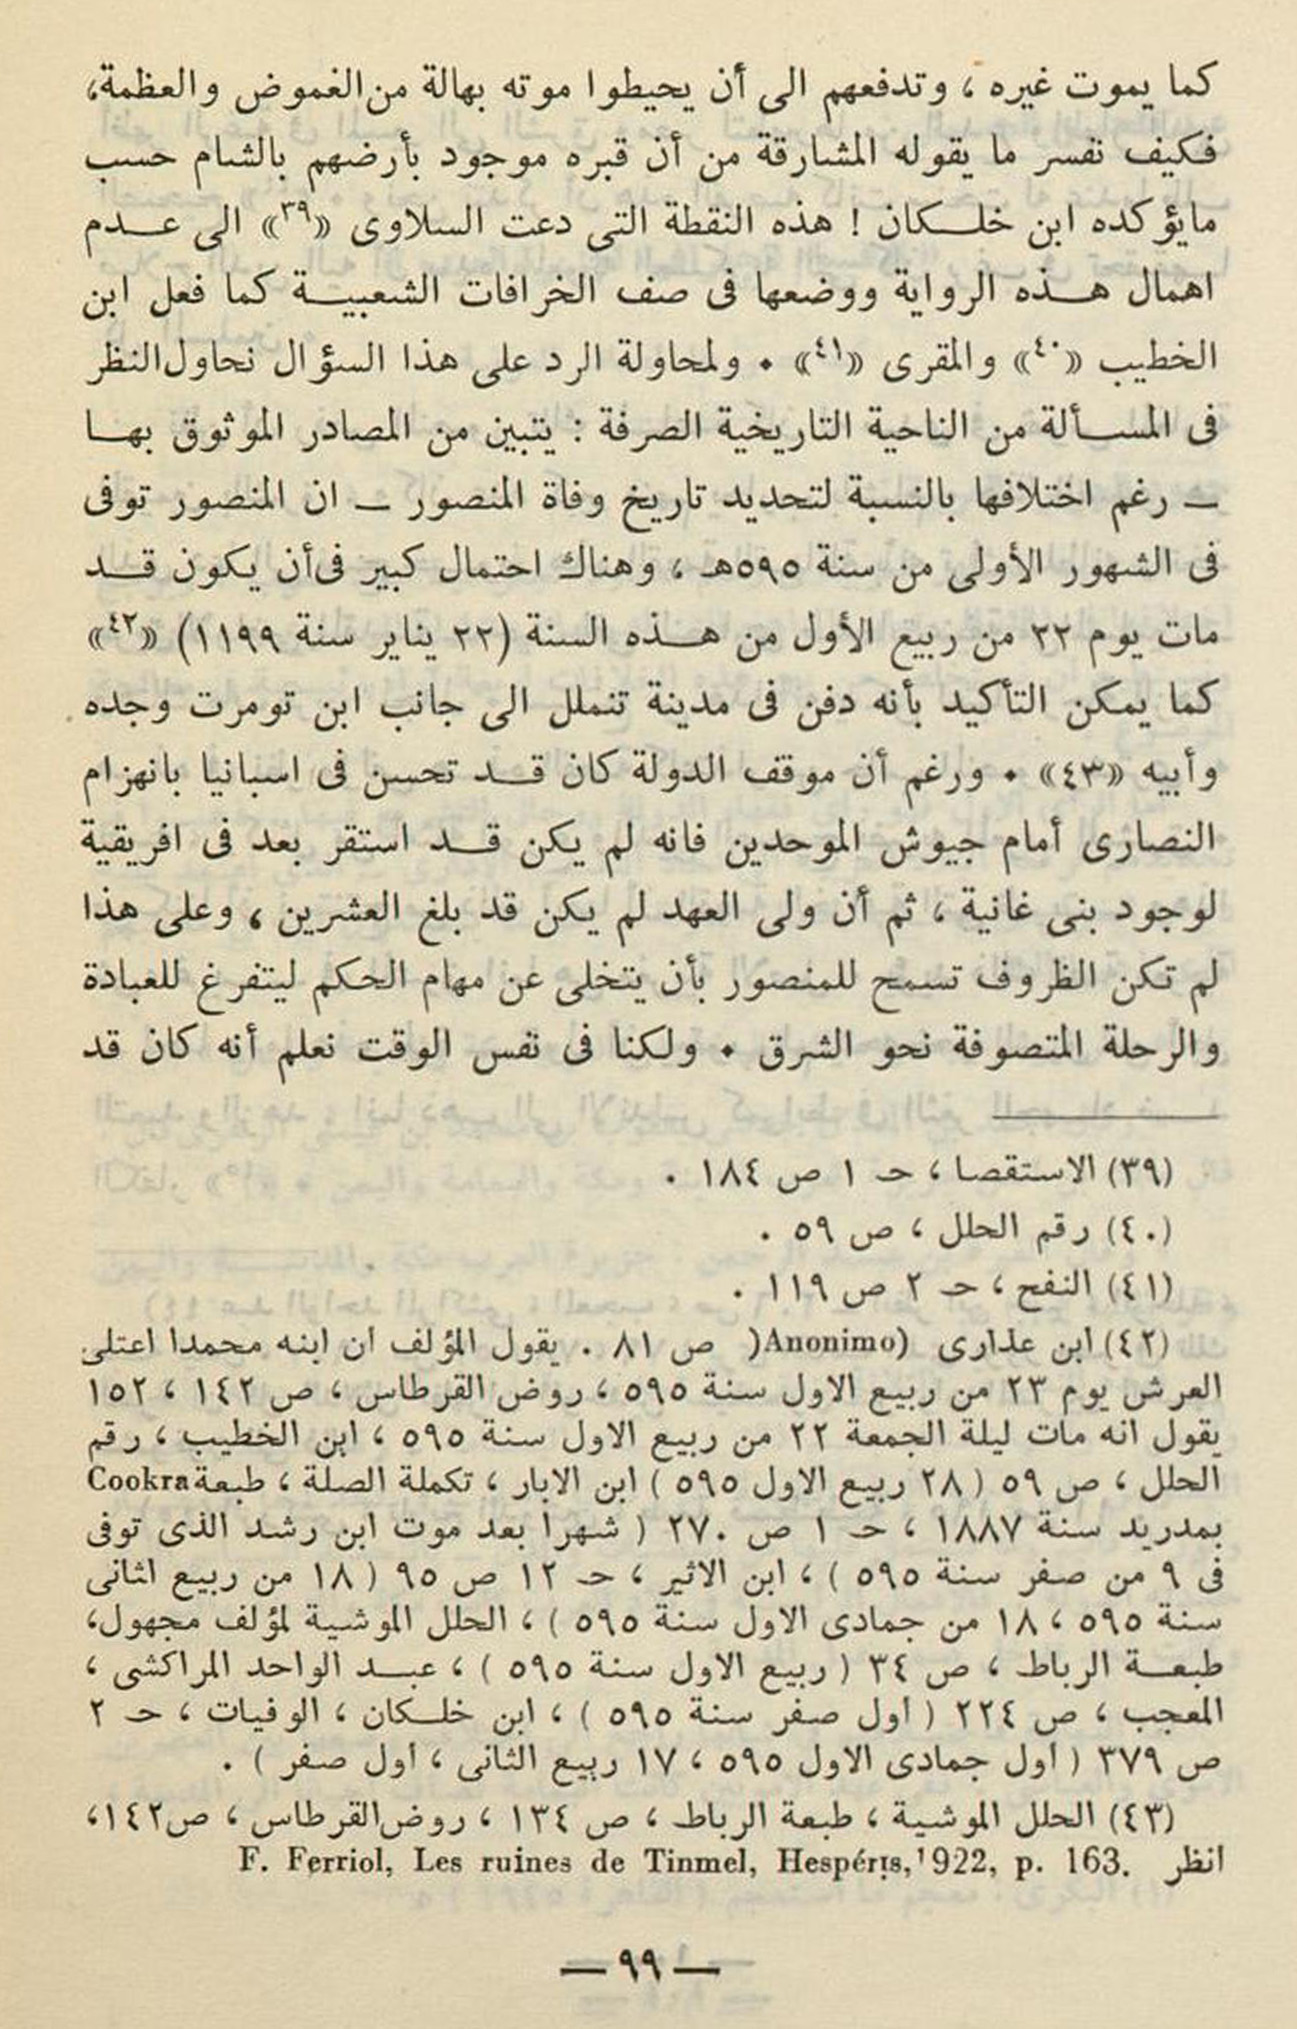 كما يموت غيره ، وتدفعهم الى أن يحيطوا موته بهالة من الغموض والعظمة،
فكيف نفسر ما يقوله المشارقة من أن قبره موجود بأرضهم بالشام حسب
مايؤكده ابن خلكان ! هذه النقطة التى دعت السلاوى «٣٩» الى عدم
اهمال هذه الرواية ووضعها فى صف الخرافات الشعبية كما فعل ابن
الخطيب «٤٠» والمقرى «٤١» . ولمحاولة الرد على هذا السؤال نحاول النظر
فى المسألة من الناحية التاريخية الصرفة : يتبين من المصادر الموثوق بها
— رغم اختلافها بالنسبة لتحديد تاريخ وفاة المنصور — ان المنصور توفى
فى الشهور الأولى من سنة ٥٩٥هـ ، وهناك احتمال كبير فى أن يكون قد
مات يوم ٢٢ من ربيع الأول من هذه السنة (٢٢ يناير سنة ١١٩٩) «٤٢»
كما يمكن التأكيد بأنه دفن فى مدينة تنملل الى جانب ابن تومرت وجده
وأبيه «٤٣» . ورغم أن موقف الدولة كان قد تحسن فى اسبانيا بانهزام
النصارى أمام جيوش الموحدين فانه لم يكن قد استقر بعد فى افريقية
لوجود بنى غانية ، ثم أن ولى العهد لم يكن قد بلغ العشرين ، وعلى هذا
لم تكن الظروف تسمح للمنصور بأن يتخلى عن مهام الحكم ليتفرغ للعبادة
والرحلة المتصوفة نحو الشرق . ولكنا فى نفس الوقت نعلم أنه كان قد
(٣٩) الاستقصا ، حـ ١ ص ١٨٤ .
(٤٠) رقم الحلل ، ص ٥٩ .
(٤١) النفح ، حـ ٢ ص ١١٩ .
(٤٢) ابن عذارى (Anonimo) ص ٨١ . يقول المؤلف ان ابنه محمدا اعتلى
العرش يوم ٢٣ من ربيع الاول سنة ٥٩٥ ، روض القرطاس ، ص ١٤٢ ، ١٥٢
يقول انه مات ليلة الجمعة ٢٢ من ربيع الاول سنة ٥٩٥ ، ابن الخطيب ، رقم
الحلل ، ص ٥٩ ( ٢٨ ربيع الاول ٥٩٥ ) ابن الابار ، تكملة الصلة ، طبعة Cookra
بمدريد سنة ١٨٨٧ ، حـ ١ ص ٢٧٠ ( شهرا بعد موت ابن رشد الذى توفى
فى ٩ من صفر سنة ٥٩٥ ) ، ابن الاثير ، حـ ١٢ ص ٩٥ ( ١٨ من ربيع اثانى
سنة ٥٩٥ ، ١٨ من جمادى الاول سنة ٥٩٥ ) ، الحلل الموشية لمؤلف مجهول،
طبعة الرباط ، ص ٣٤ ( ربيع الاول سنة ٥٩٥ ) ، عبد الواحد المراكشى ،
المعجب ، ص ٢٢٤ ( أول صفر سنة ٥٩٥ ) ، ابن خلكان ، الوفيات ، حـ ٢
ص ٣٧٩ ( أول جمادى الاول ٥٩٥ ، ١٧ ربيع الثانى ، أول صفر ) .
(٤٣) الحلل الموشية ، طبعة الرباط ، ص ١٣٤ ، روض القرطاس ، ص١٤٢،
انظر F. Ferriol, Les ruines de Tinmel, Hespéris, 1922, p. 163.
— ٩٩ —